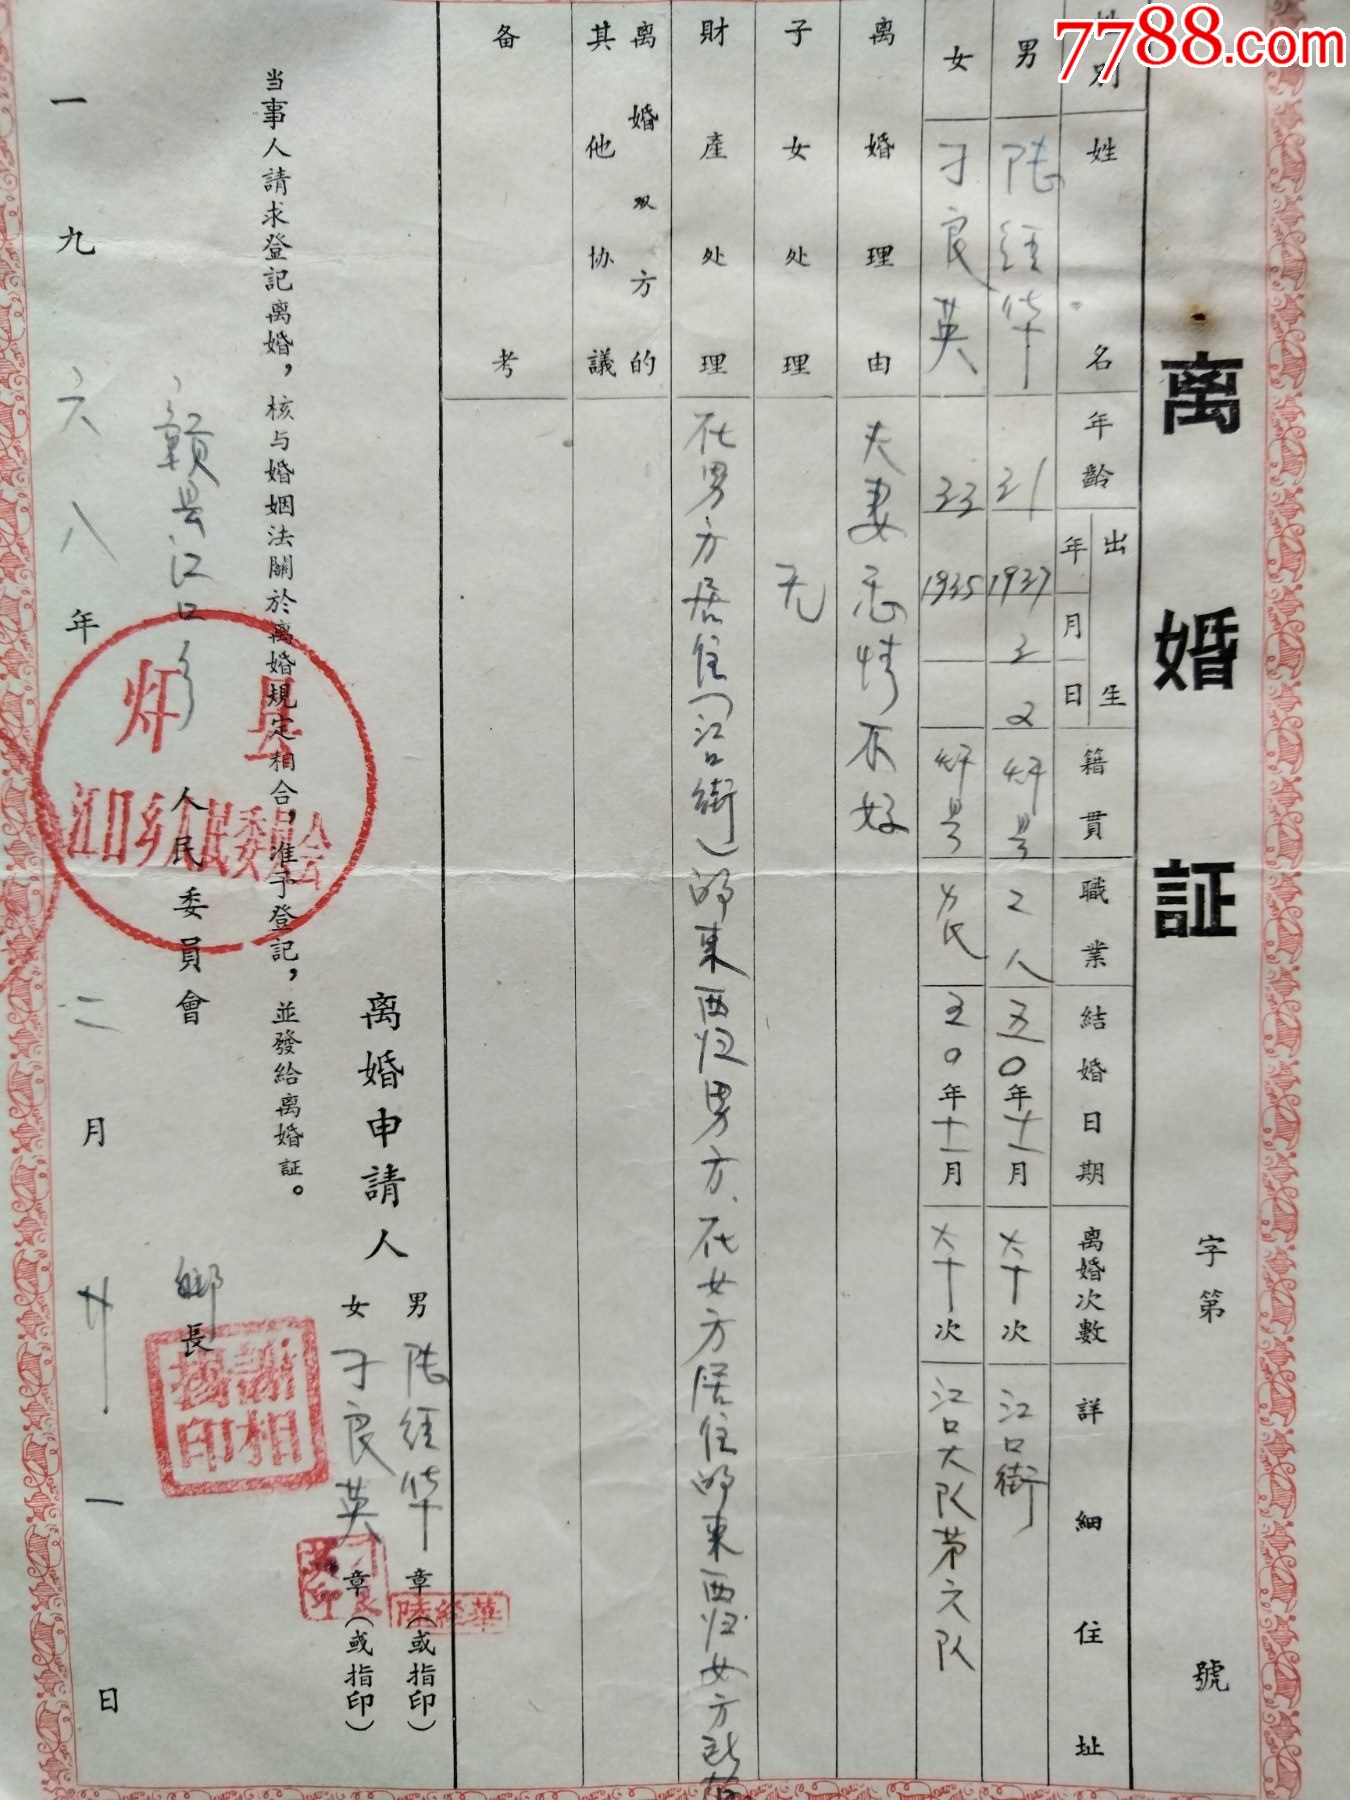 7788.com
离婚証
字第 號
姓别 姓名 年齡 出生年月日 籍貫 職業 結婚日期 离婚次數 詳細住址
男 陆経华 31 1937 3 2 灨县 工人 五〇年十二月 次 江口街
女 刁良英 33 1935 灨县 农 五〇年十二月 次 江口大队第六队
离婚理由 夫妻感情不好
子女处理 无
財產处理 在男方居住(江口街)的東西归男方、在女方居住的東西归女方所
离婚双方的其他協議
备考
离婚申請人
男 陆経华 章(或指印)
女 刁良英 章(或指印)
陸経華
当事人請求登記离婚，核与婚姻法關於离婚規定相合，准予登記，並發給离婚証。
贛县江口乡人民委員會
鄉長
江口乡人民委員会
一九六八年二月廿一日